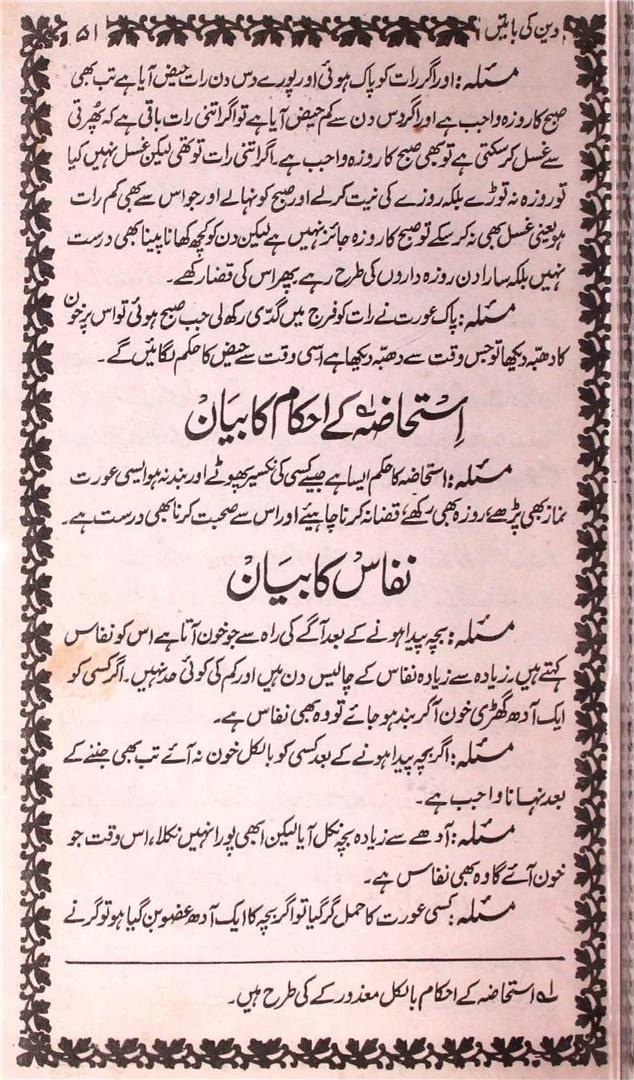 دین کی باتیں ۵۱
مسئلہ: اور اگر رات کو پاک ہوئی اور پورے دس دن رات حیض آیا ہے تب بھی
صبح کا روزہ واجب ہے اور اگر دس دن سے کم حیض آیا ہے تو اگر اتنی رات باقی ہے کہ پھرتی
سے غسل کر سکتی ہے تو بھی صبح کا روزہ واجب ہے۔ اگر اتنی رات تو تھی لیکن غسل نہیں کیا
تو روزہ نہ توڑے بلکہ روزے کی نیت کر لے اور صبح کو نہا لے اور جو اس سے بھی کم رات
ہو یعنی غسل بھی نہ کر سکے تو صبح کا روزہ جائز نہیں ہے لیکن دن کو کچھ کھانا پینا بھی درست
نہیں بلکہ سارا دن روزہ داروں کی طرح رہے پھر اس کی قضا رکھے۔
مسئلہ: پاک عورت نے رات کو فرج میں گدّی رکھ لی جب صبح ہوئی تو اس پر خون
کا دھبّہ دیکھا تو جس وقت سے دھبّہ دیکھا ہے اسی وقت سے حیض کا حکم لگائیں گے۔
اِستحاضہ ؂۱ کے احکام کا بیان
مسئلہ: استحاضہ کا حکم ایسا ہے جیسے کسی کی نکسیر پھوٹے اور بند نہ ہو ایسی عورت
نماز بھی پڑھے، روزہ بھی رکھے، قضا نہ کرنا چاہیئے اور اس سے صحبت کرنا بھی درست ہے۔
نفاس کا بیان
مسئلہ: بچہ پیدا ہونے کے بعد آگے کی راہ سے جو خون آتا ہے اس کو نفاس
کہتے ہیں۔ زیادہ سے زیادہ نفاس کے چالیس دن ہیں اور کم کی کوئی حد نہیں۔ اگر کسی کو
ایک آدھ گھڑی خون آ کر بند ہو جائے تو وہ بھی نفاس ہے۔
مسئلہ: اگر بچہ پیدا ہونے کے بعد کسی کو بالکل خون نہ آئے تب بھی جننے کے
بعد نہانا واجب ہے۔
مسئلہ: آدھے سے زیادہ بچہ نکل آیا لیکن ابھی پورا نہیں نکلا، اس وقت جو
خون آئے گا وہ بھی نفاس ہے۔
مسئلہ: کسی عورت کا حمل گر گیا تو اگر بچہ کا ایک آدھ عضو بن گیا ہو تو گرنے
؂۱ استحاضہ کے احکام بالکل معذور کے کی طرح ہیں۔